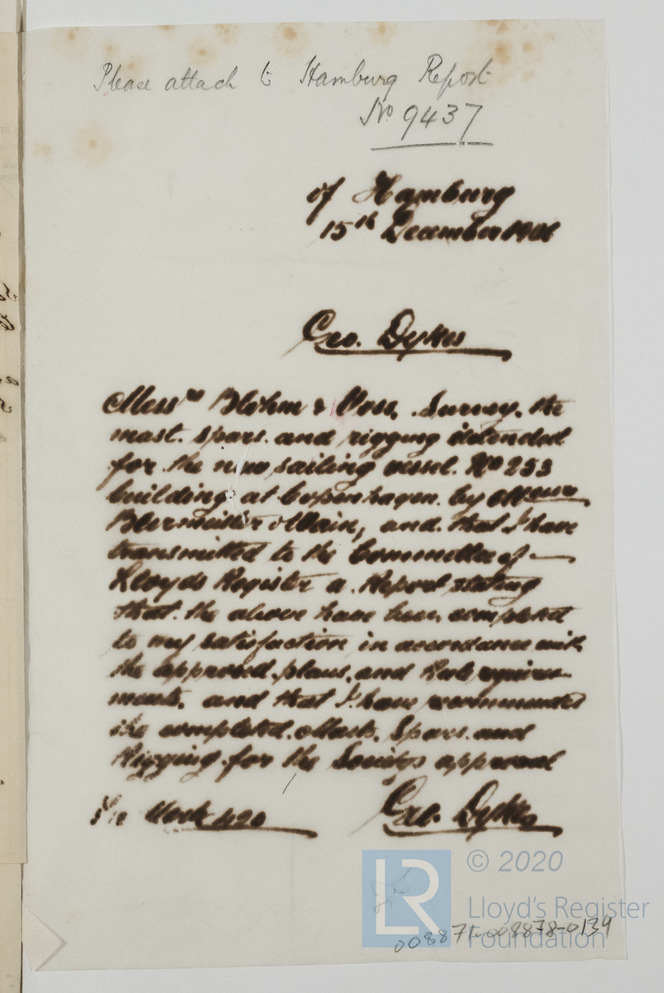 Please attach to Hamburg Report
No 9437
of Hamburg
15th December
Geo. Dykes
Messrs Blohm & Voss, Survey. the
mast. spars. and rigging intended
for the new sailing vessel. No 233
building at Copenhagen. by Messrs
Burmeister & Wain, and. that I have
transmitted to the Committee of
Lloyds Register a. Report stating
that. the above have been completed
to my satisfaction in accordance with
the approved. plans, and Rule require-
ments. and that I have recommended
the completed. Masts. Spars. and
Rigging for the Society's approval
Geo. Dykes
LR
© 2020
Lloyd's Register
Foundation
008878-0134